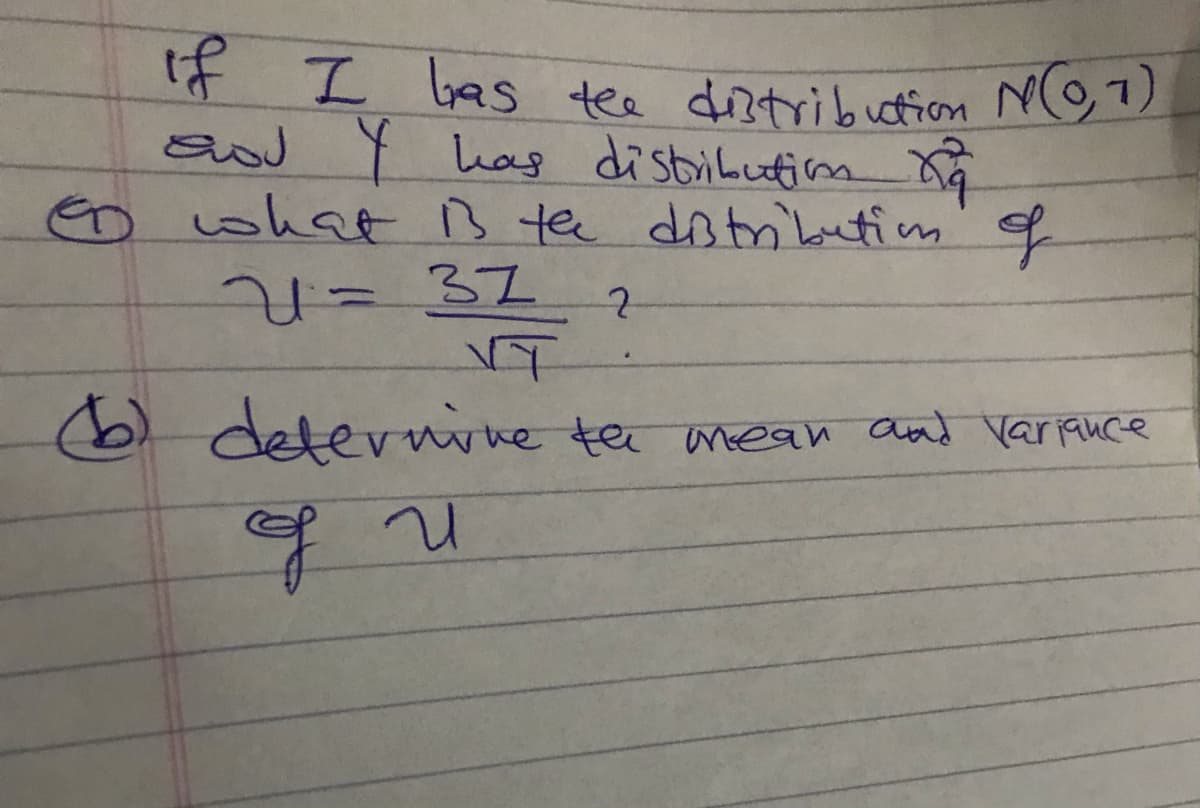 if Z has the distribution N(0,1)
and Y has distribution χ²₉
a) what is the distribution of
U = 3Z / √Y ?
(b) determine the mean and variance
of U